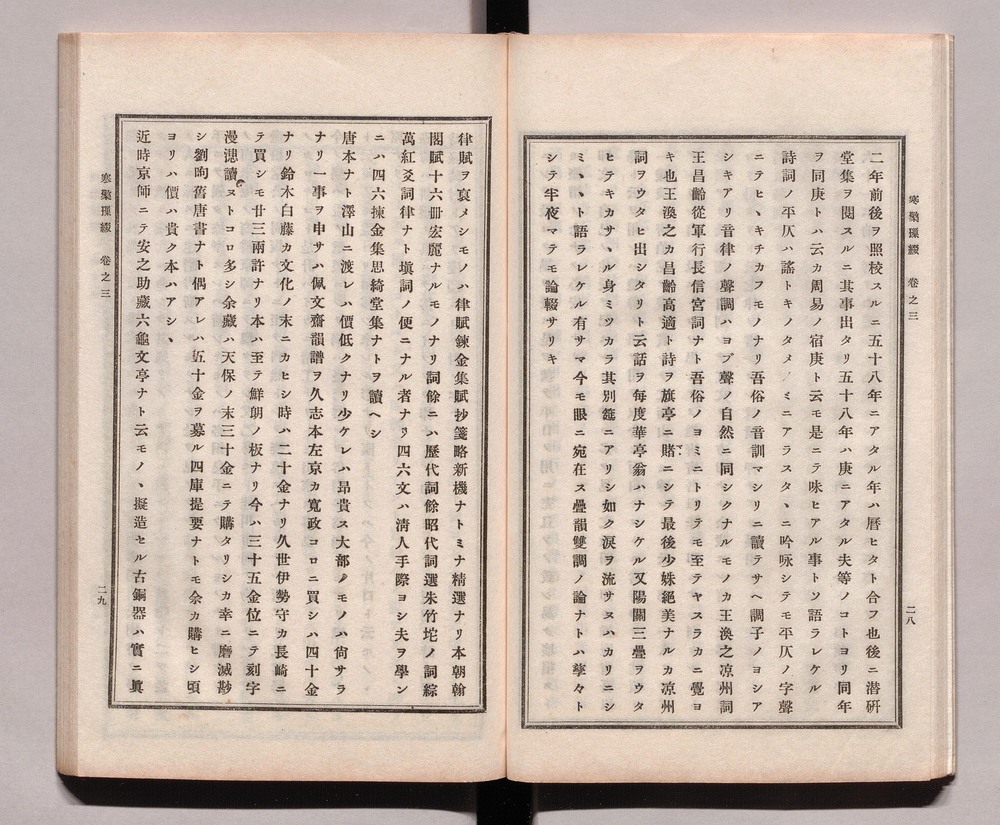 寒檠璅綴　卷之三
二八
二年前後ヲ照校スルニ五十八年ニアタル年ハ曆ヒタト合フ也後ニ潜硏
堂集ヲ閱スルニ其事出タリ五十八年ハ庚ニアタル夫等ノコトヨリ同年
ヲ同庚トハ云カ周易ノ宿庚ト云モ是ニテ味ヒアル事トソ語ラレケル
詩詞ノ平仄ハ謠トキノタメノミニアラスタヽニ吟咏シテモ平仄ノ字聲
ニテヒヽキチカフモノナリ吾俗ノ音訓マシリニ讀テサヘ調子ノヨシア
シキアリ音律ノ聲調ハヨブ聲ノ自然ニ同シクナルモノカ王渙之凉州詞
王昌齡從軍行長信宮詞ナト吾俗ノヨミニトリテモ至テヤスラカニ覺ヨ
キ也王渙之カ昌齡高適ト詩ヲ旗亭ニ賭ニシテ最後少姝絕美ナルカ凉州
詞ヲウタヒ出シタリト云話ヲ每度華亭翁ハナシケル又陽關三疊ヲウタ
ヒテキカサヽル身ミツカラ其別筵ニアリシ如ク淚ヲ流サヌハカリニシ
ミヽヽト語ラレケル有サマ今モ眼ニ宛在ス疊韻雙調ノ論ナトハ孳々ト
シテ半夜マテモ論輟サリキ
律賦ヲ裒メシモノハ律賦鍊金集賦抄箋略新機ナトミナ精選ナリ本朝翰
閣賦十六册宏麗ナルモノナリ詞餘ニハ歷代詞餘昭代詞選朱竹垞ノ詞綜
萬紅友詞律ナト塡詞ノ便ニナル者ナリ四六文ハ淸人手際ヨシ夫ヲ學ン
ニハ四六揀金集思綺堂集ナトヲ讀ヘシ
唐本ナト澤山ニ渡レハ價低クナリ少ケレハ昂貴ス大部ノモノハ尙サラ
ナリ一事ヲ申サハ佩文齋韻譜ヲ久志本左京カ寬政コロニ買シハ四十金
ナリ鈴木白藤カ文化ノ末ニカヒシ時ハ二十金ナリ久世伊勢守カ長崎ニ
テ買シモ廿三兩許ナリ本ハ至テ鮮朗ノ板ナリ今ハ三十五金位ニテ刻字
漫漶讀ヌトコロ多シ余藏ハ天保ノ末三十金ニテ購タリシカ幸ニ磨滅尠
シ劉昫舊唐書ナト偶アレハ五十金ヲ募ル四庫提要ナトモ余カ購ヒシ頃
ヨリハ價ハ貴ク本ハアシヽ
近時京師ニテ安之助藏六龜文亭ナト云モノヽ擬造セル古銅器ハ實ニ眞
寒檠璅綴　卷之三
二九